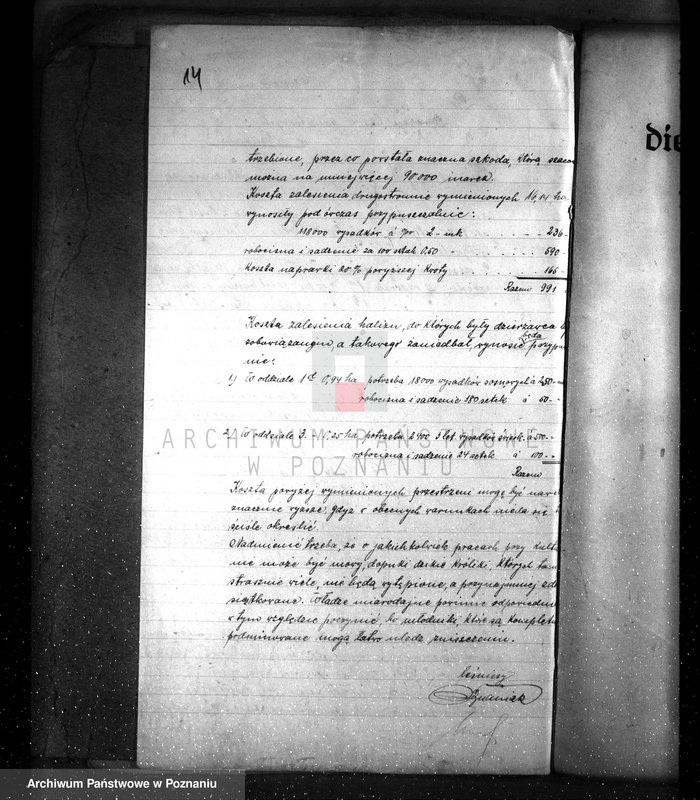 14
trzebione, przez co powstała znaczna szkoda, którą szaco
można na mniejwięcej 90.000 marek.
Koszta zalesienia drugostronnie wymienionych 16,14 ha
wynosiły podówczas przypuszczalnie:
118000 wysadków á 2 - mk. 236
robocizna i sadzenie za 100 sztuk 0,50 590
Koszta naprawki 20% powyższej kwoty 165
Razem 991
Koszta zalesienia halizn, do których były dzierżawca
zobowiązanym, a takowego zaniedbał, wynosić będą przypu
nie:
1) W oddziale 1 0,94 ha potrzeba 18000 wysadków sosnowych á
robocizna i sadzenie 180 setek á 50
2. W oddziale 3. 0,25 ha potrzeba 2400 3 let wysadków á 500
robocizna i sadzenie 24 setek á 100
Razem
Koszta powyżej wymienionych przestrzeni mogą być nawe
znacznie wyższe, gdyż w obecnych warunkach nieda się
ściśle określić.
Nadmienić trzeba, że o jakichkolwiek pracach przy kultu
nie może być mowy, dopóki dzikie króliki, których tam
strasznie wiele, nie będą wytępione, a przynajmniej zdz
siątkowane. Władze miarodajne powinne odpowiednie
w tym względzie poczynić, bo młodniki, które są kompletn
podminowane mogą łatwo uledz zniszczeniu.
leśniczy
die
ARCHIWUM PAŃSTWOWE
W POZNANIU
Archiwum Państwowe w Poznaniu